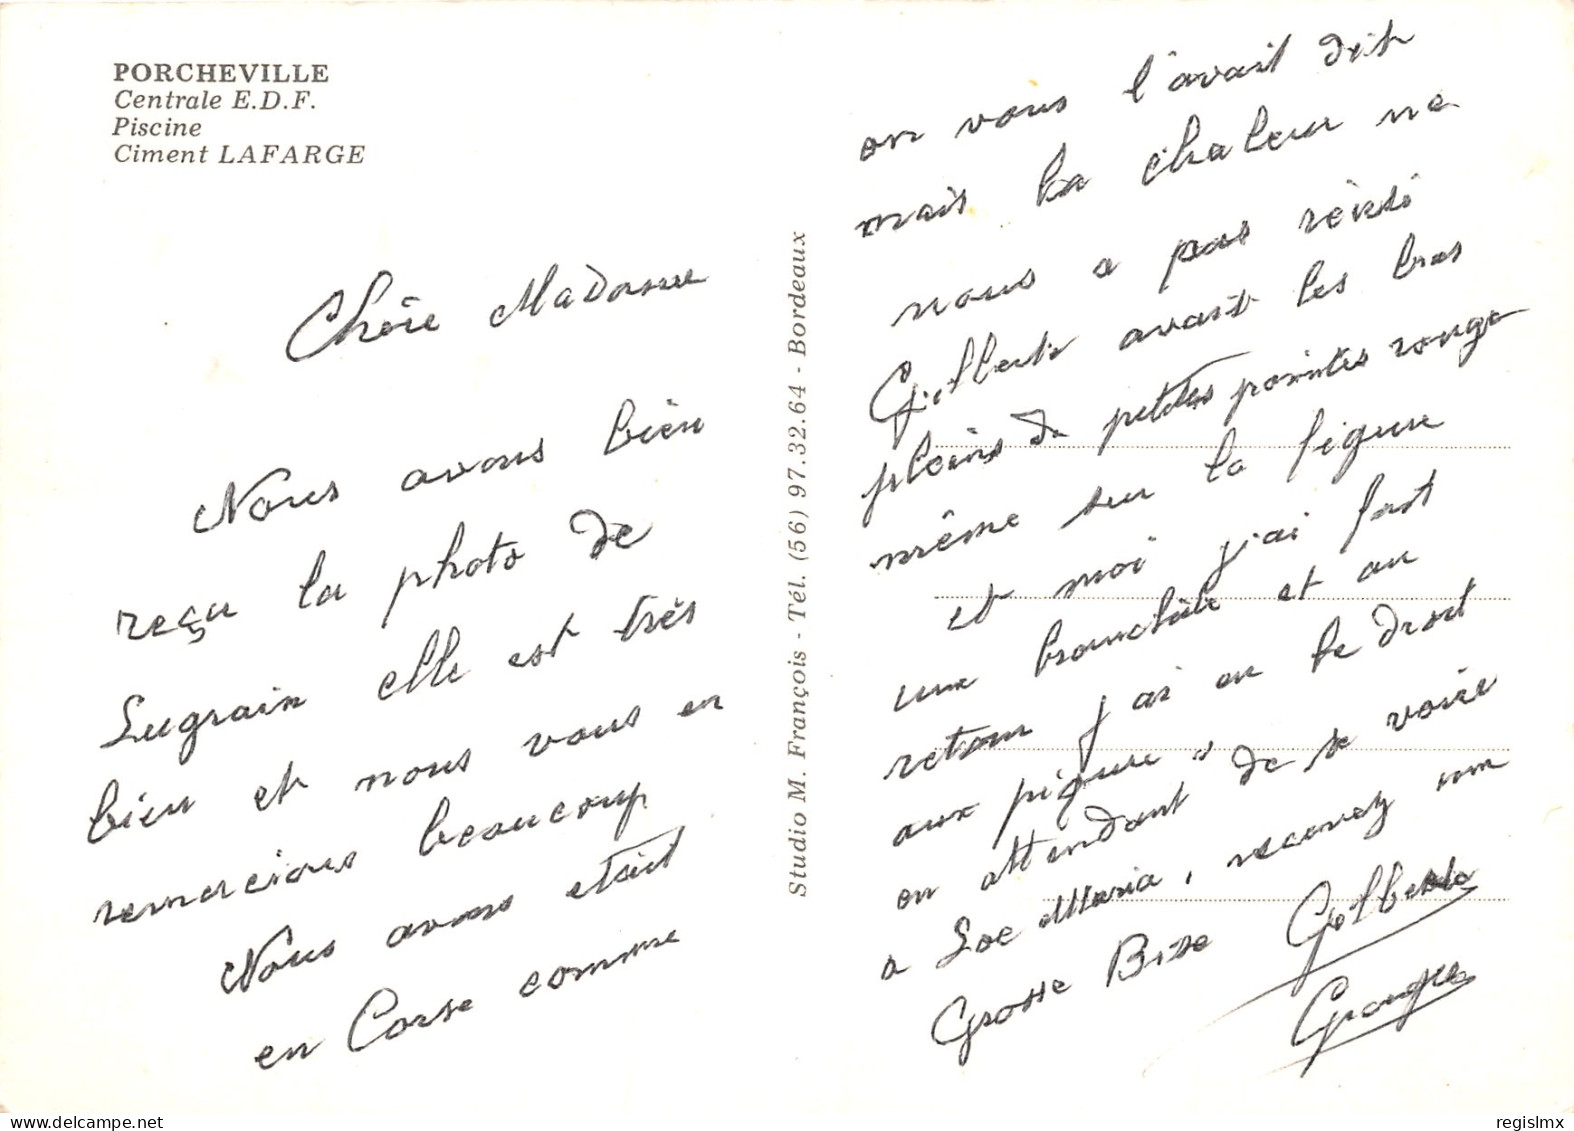 PORCHEVILLE
Centrale E.D.F.
Piscine
Ciment LAFARGE
Chère Madame
Nous avons bien
reçu la photo de
Lugrain elle est très
bien et nous vous en
remercions beaucoup
Nous avons était
en Corse comme
Studio M. François - Tél. (56) 97.32.64 - Bordeaux
on vous l'avait dit
mais la chaleur ne
nous a pas réussi
Gilberte avait les bras
pleins de petites pointes rouge
même sur la figure
et moi j'ai fait
une bronchite et au
retour j'ai eu le droit
aux piqure
en attendant de se voire
a Loc Maria, recevez une
Grosse Bise Gilberte
Georges
regislmx